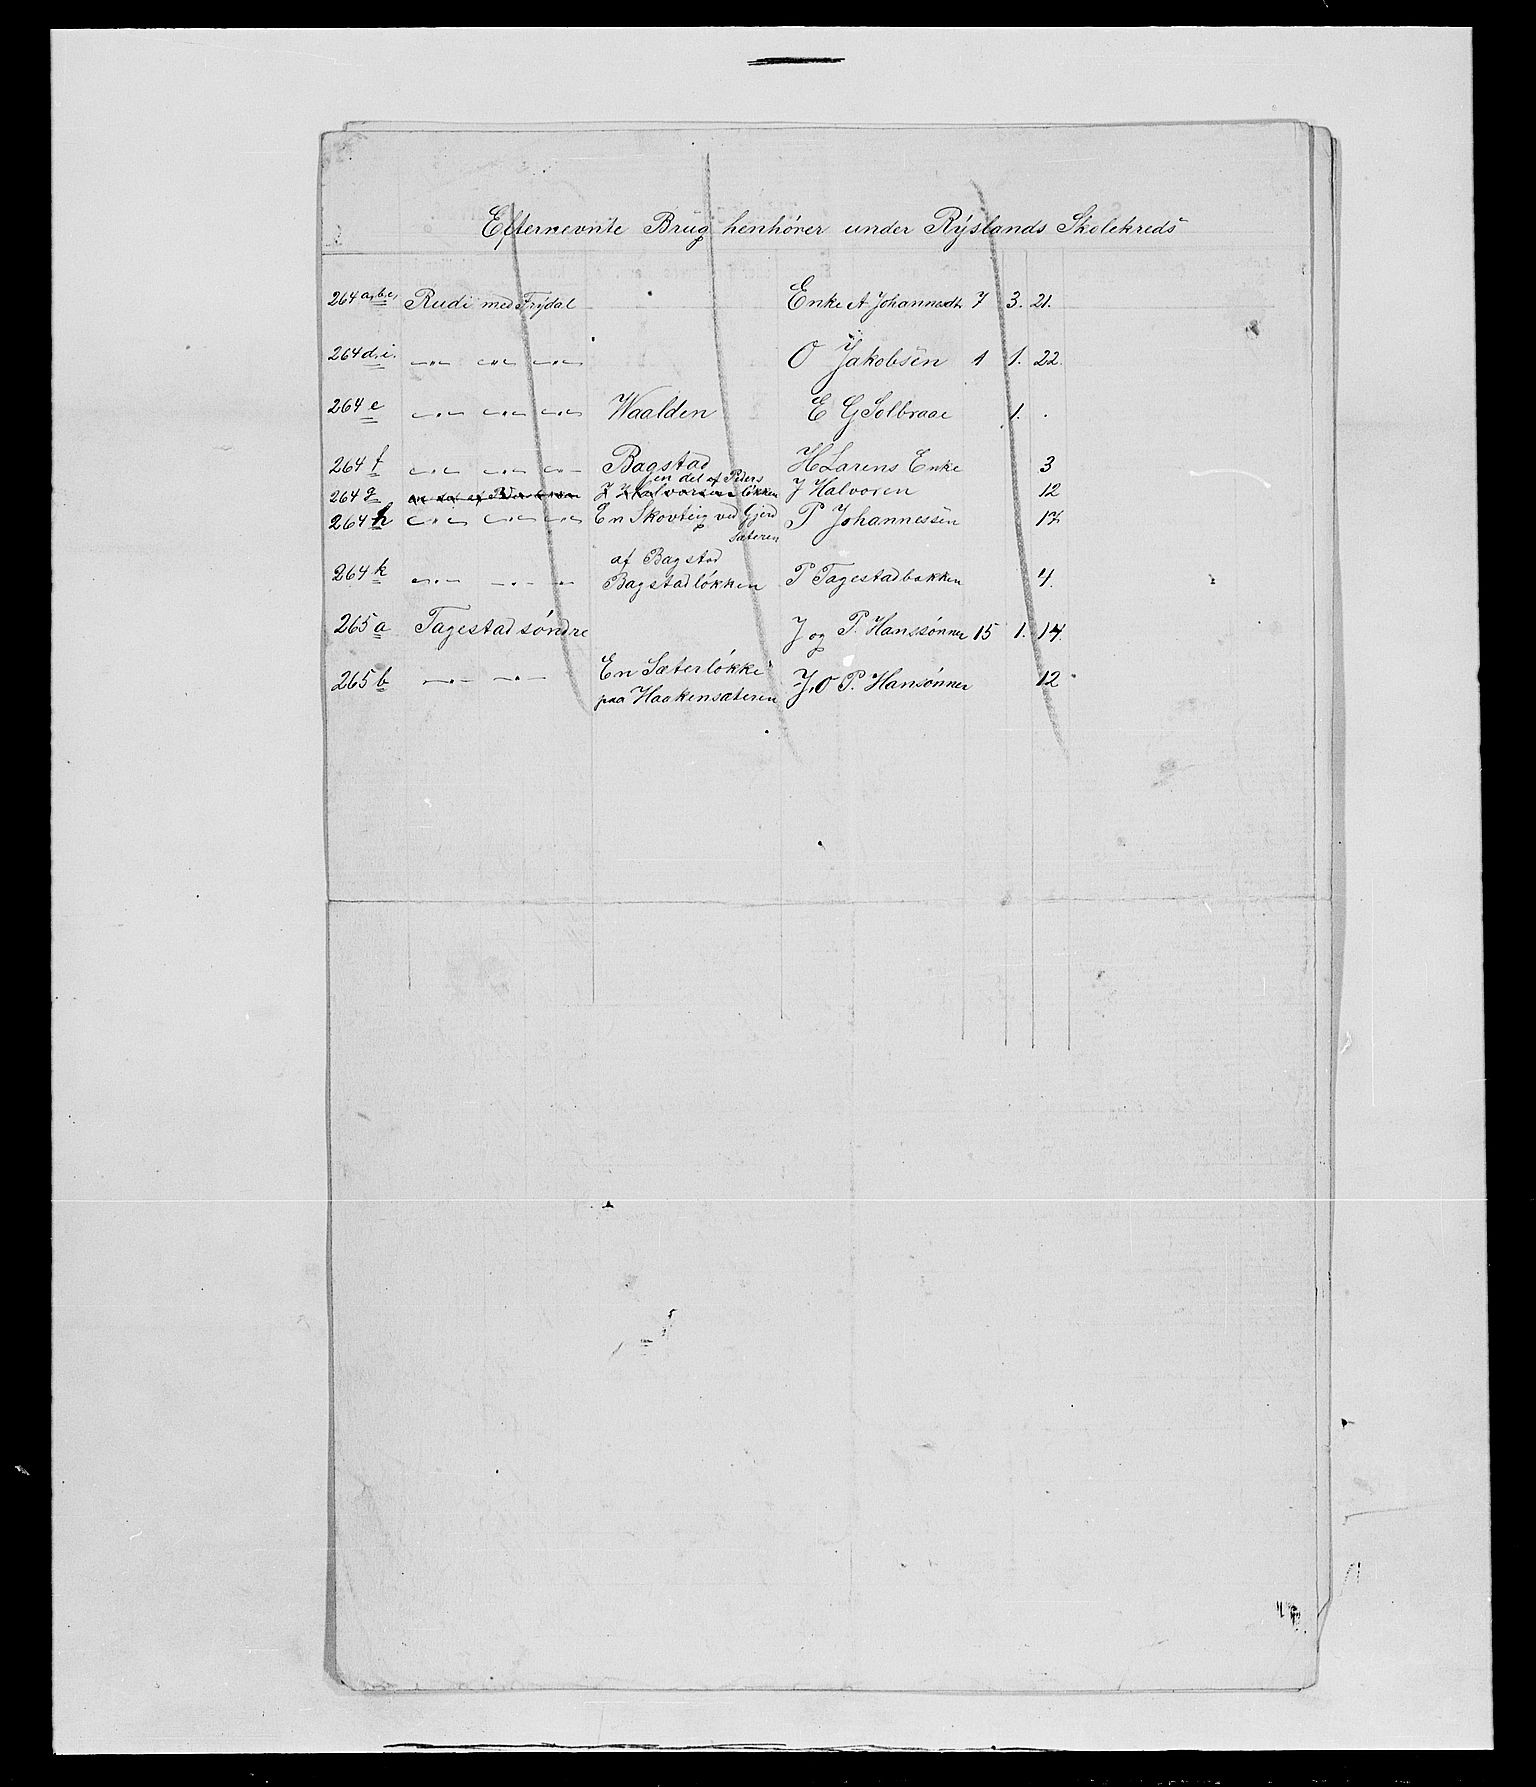 Efternevnte Brug henhörer under Ryslands Skolekreds
264 a,b,c, Rudi med Frydal Enke A Johannesdt. 7 3. 21.
264 d, i. —"— —"— —"— O Jakobsen 1 1. 22.
264 e —"— —"— —"— Waalden E G Solbraae 1. .
264 f —"— —"— —"— Bagstad H Larens Enke 3
en del af Peders
264 g J Halvorsens løkken J Halvoren 12
264 h —"— —"— —"— En Skovteig ved Gjerd P Johannessen 17
sæteren
af Bagstad
264 k —"— —"— —"— Bagstadløkken P Tagestadbakken 4.
265 a Tagestad søndre J og P. Hanssønner 15 1. 14.
En Sæterløkke
265 b —"— —"— J. O P. Hansønner 12
paa Haakensæteren